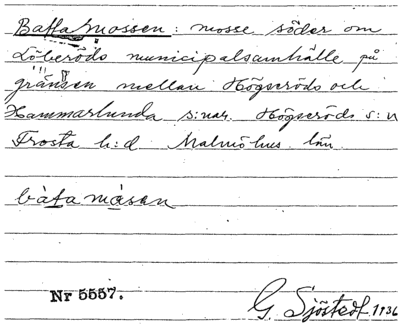 Baffamossen: mosse söder om
Löberöds municipalsamhälle på
gränsen mellan Högseröds och
Hammarlunda s:nar. Högseröds s:n
Frosta h:d Malmöhus län
bàfa måsen
Nr 5557.
G. Sjöstedt 1936